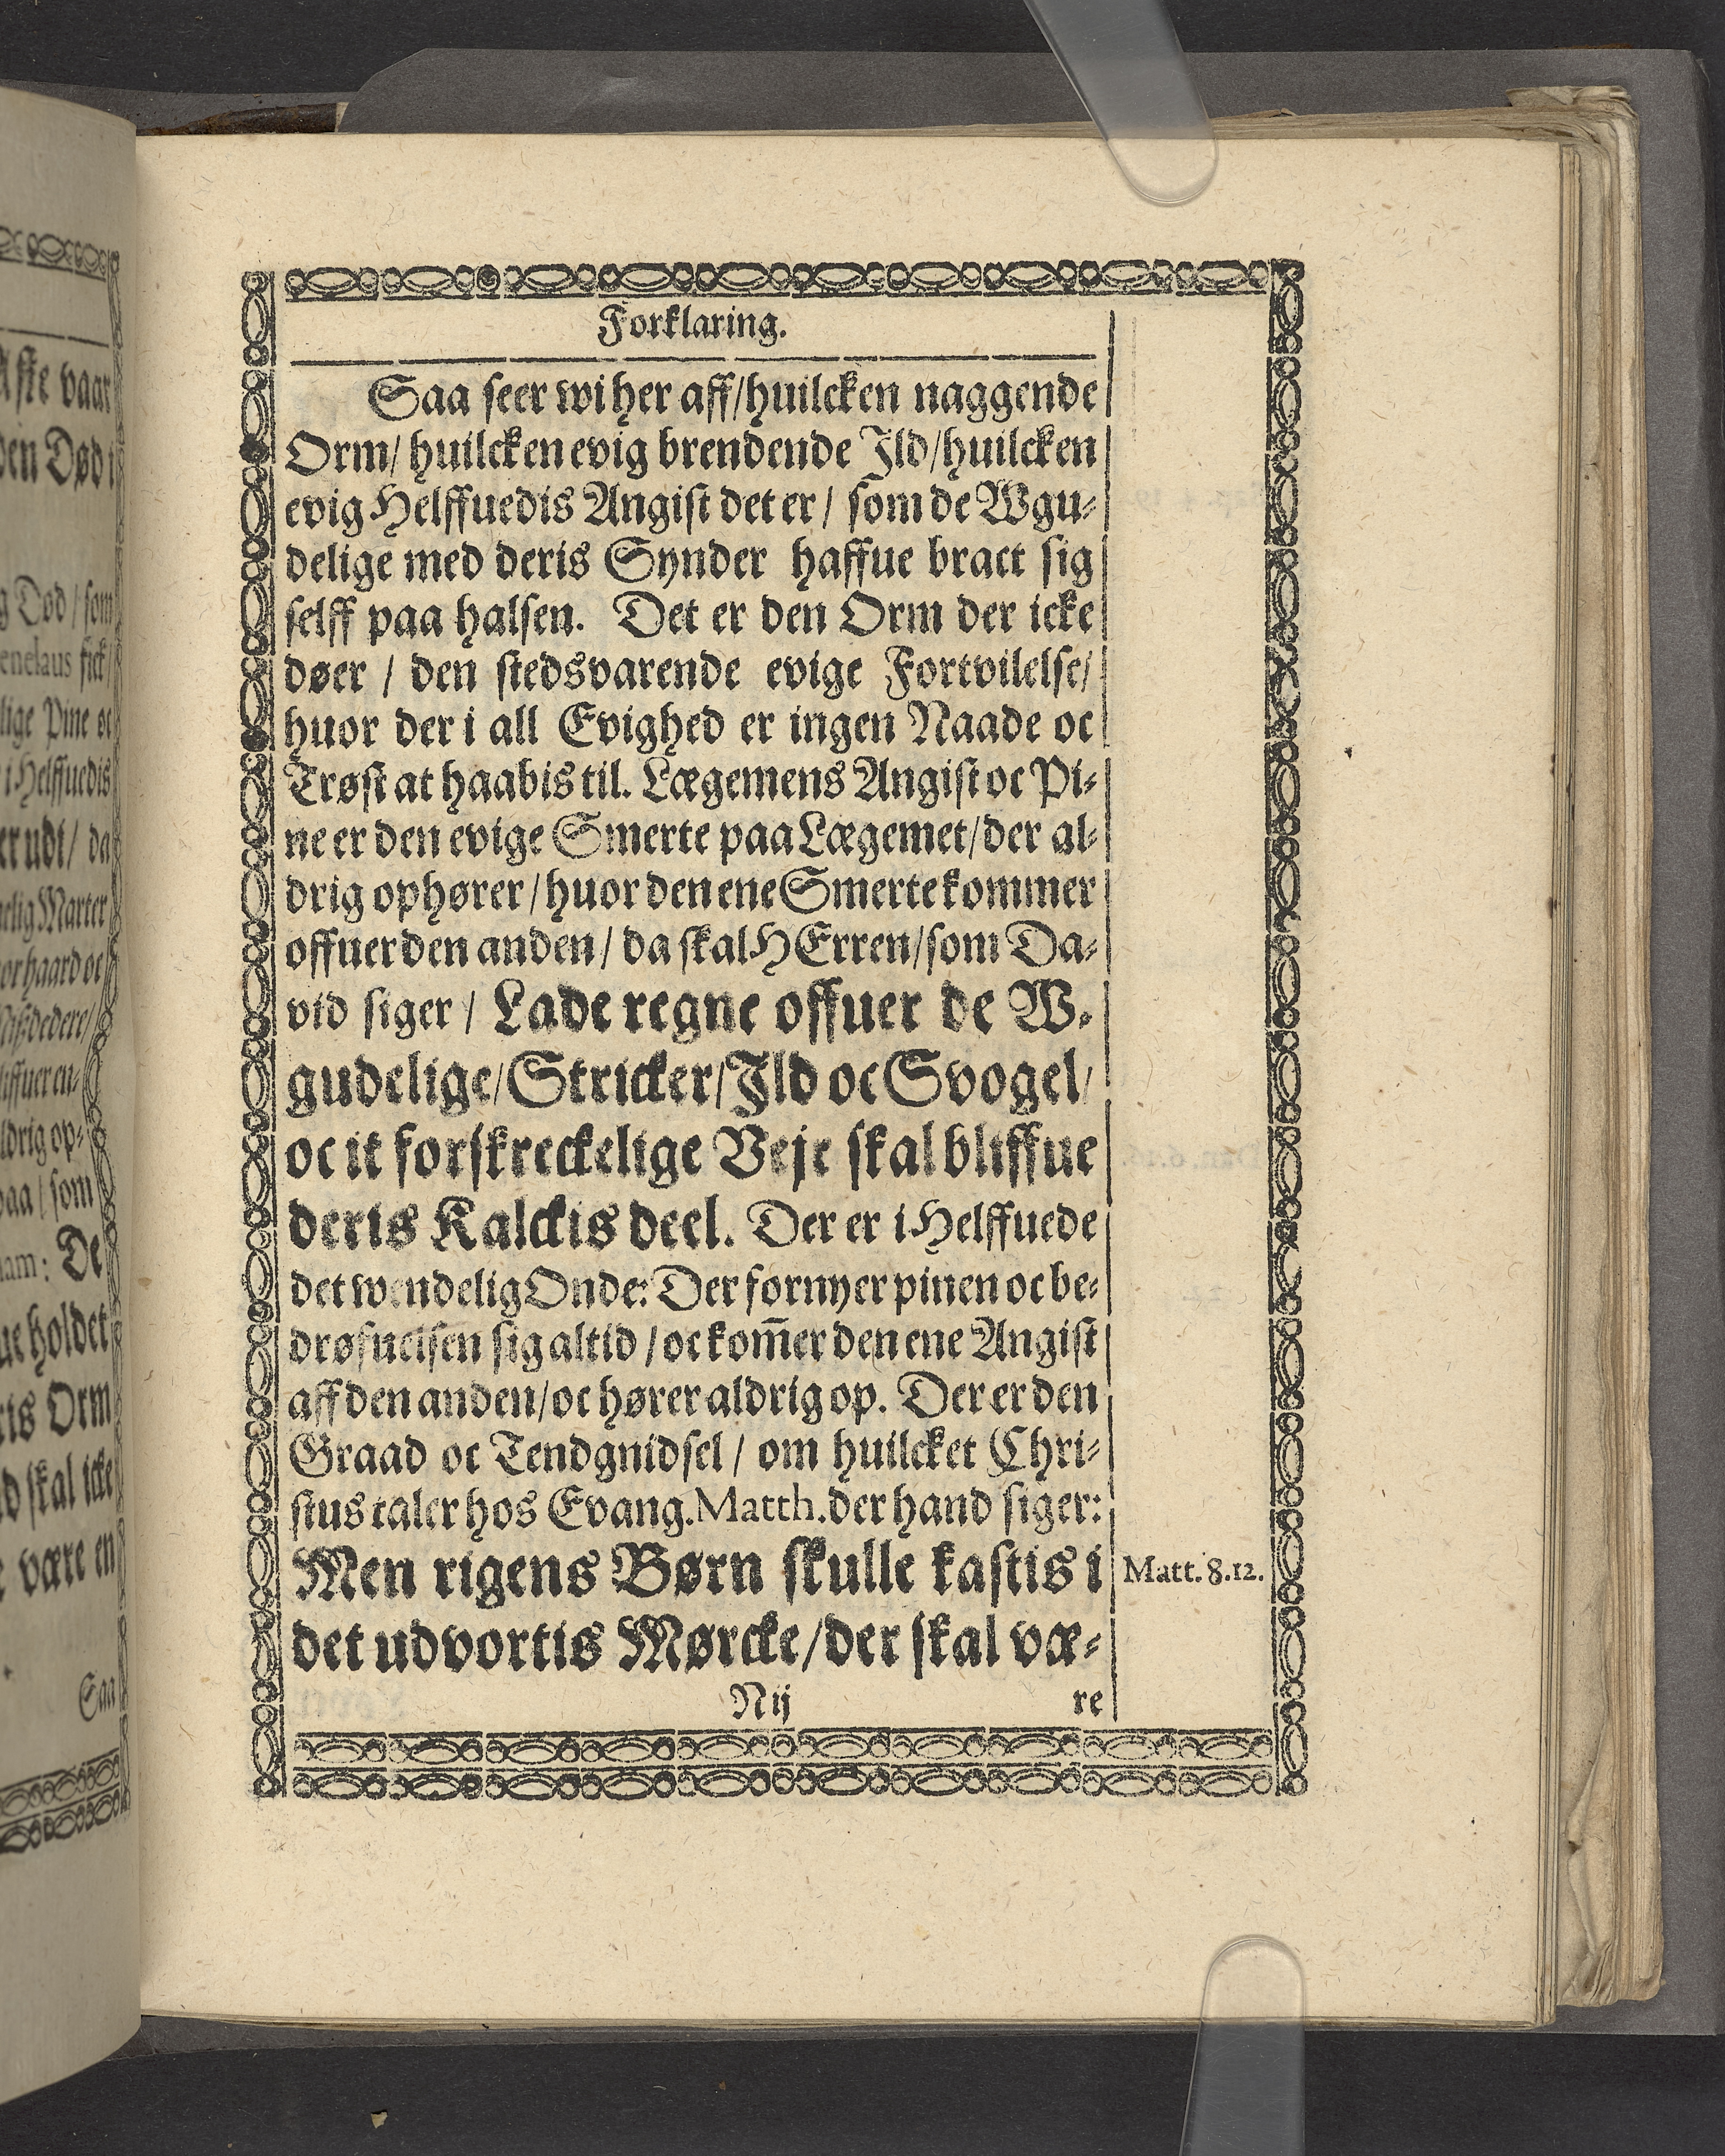 Forklaring.
Saa seer wi her aff/huilcken naggende
Orm/ huilcken evig brendende Ild/huilcken
evig Helffuedis Angist det er/ som de Wgu-
delige med deris Synder haffue bract sig
selff paa halsen. Det er den Orm der icke
døer / den stedsvarende evige Fortvilelse/
huor der i all Evighed er ingen Naade oc
Trøst at haabis til. Lægemens Angist oc Pi-
ne er den evige Smerte paa Lægemet/der al-
drig ophører/huor den ene Smerte kommer
offuer den anden/ da skal HErren/som Da-
vid siger / Lade regne offuer de W-
gudelige/Stricker/Ild oc Svogel/
oc it forskreckelige Vejr skal bliffue
deris Kalckis deel. Der er i Helffuede
det wendelig Onde: Der fornyer pinen oc be-
drøfuelsen sig altid / oc kom̃er den ene Angist
aff den anden/oc hører aldrig op. Der er den
Graad oc Tendgnidsel / om huilcket Chri-
stus taler hos Evang. Matth. der hand siger:
Men rigens Børn skulle kastis i
Matt. 8.12.
det udvortis Mørcke/der skal væ-
Nij
re